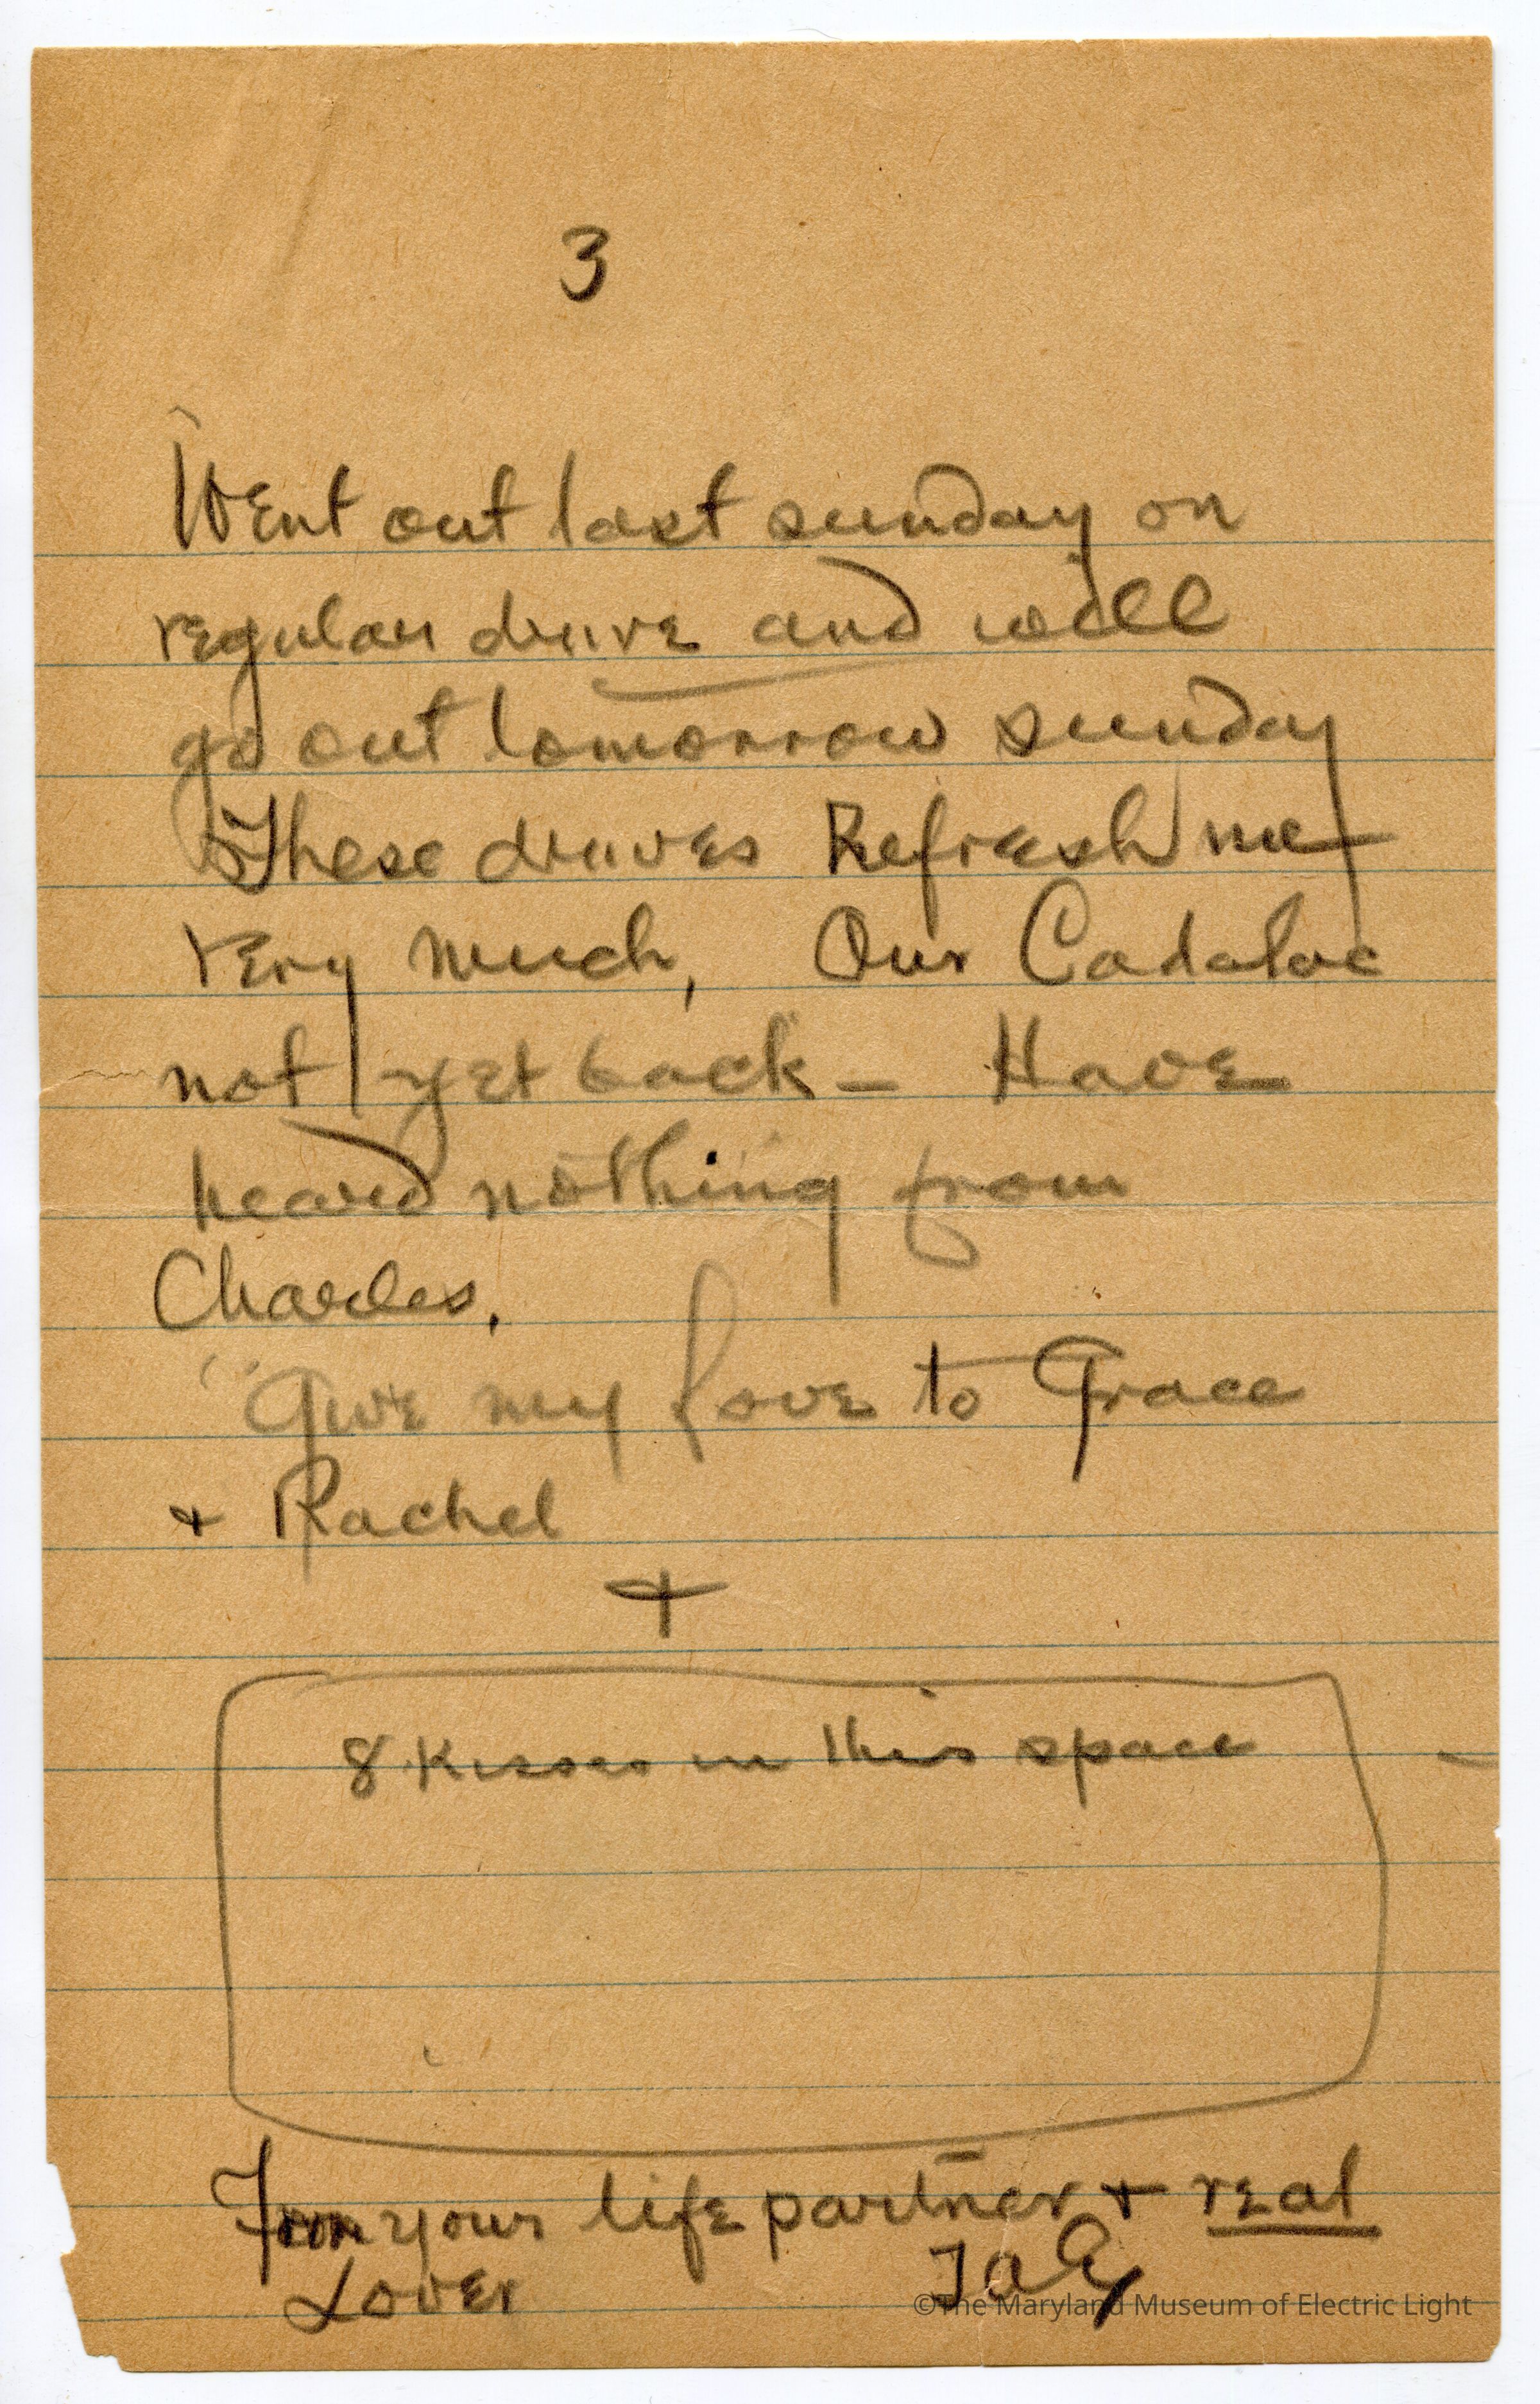 3
Went out last sunday on
regular drive and will
go out tomorrow sunday
These drives Refresh me
very much, Our Cadalac
not yet back – Have
heard nothing from
Charles.
Give my love to Grace
+ Rachel
+
8 kisses in this space
From your life partner + real
Lover TAE
©The Maryland Museum of Electric Light